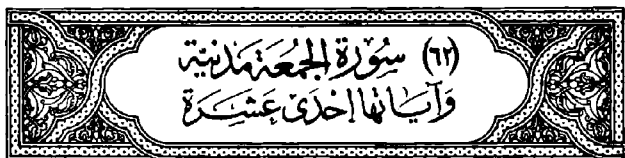 (٦٢) سُورَة الجُمعَة مَدنيّة
وَآياتها إحْدى عَشِرَة